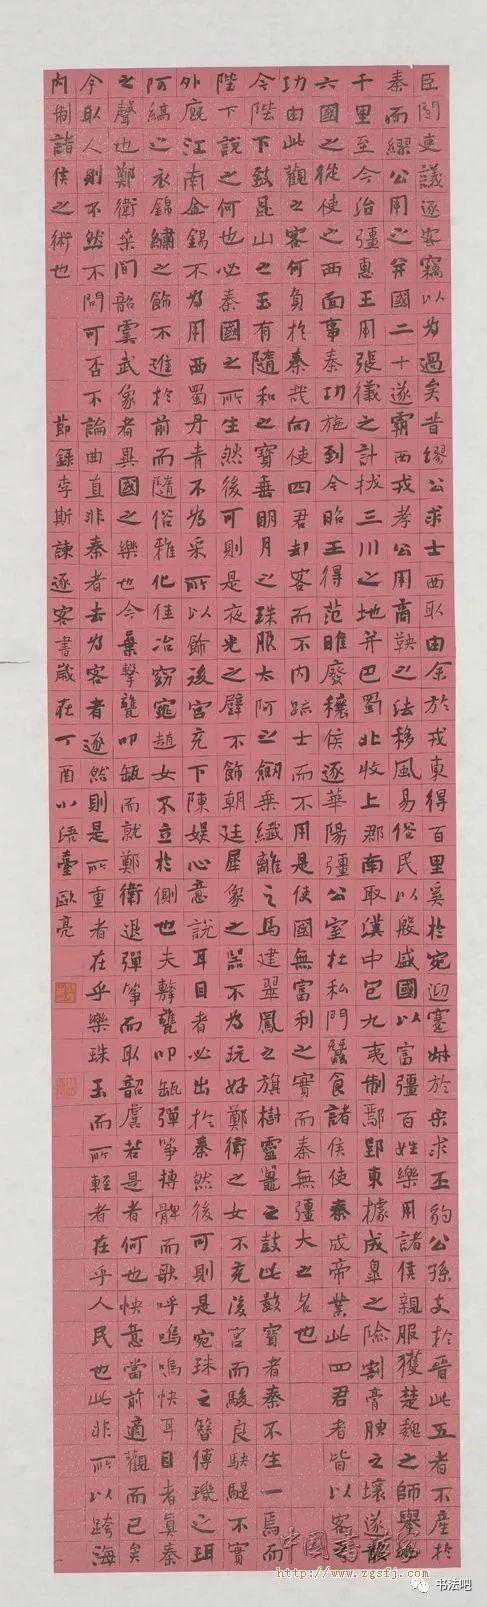 臣聞吏議逐客竊以為過矣昔繆公求士西取由余於戎東得百里奚於宛迎蹇叔於宋求丕豹公孫支於晉此五者不產於
秦而繆公用之并國二十遂霸西戎孝公用商鞅之法移風易俗民以殷盛國以富彊百姓樂用諸侯親服獲楚魏之師舉地
千里至今治彊惠王用張儀之計拔三川之地并巴蜀北收上郡南取漢中包九夷制鄢郢東據成皋之險割膏腴之壤遂散
六國之從使之西面事秦功施到今昭王得范雎廢穰侯逐華陽彊公室杜私門蠶食諸侯使秦成帝業此四君者皆以客之
功由此觀之客何負於秦哉向使四君却客而不內疏士而不用是使國無富利之實而秦無彊大之名也
今陛下致昆山之玉有隨和之寶垂明月之珠服太阿之劍乘纖離之馬建翠鳳之旗樹靈鼉之鼓此數寶者秦不生一焉而
陛下說之何也必秦國之所生然後可則是夜光之璧不飾朝廷犀象之器不為玩好鄭衛之女不充後宮而駿良駃騠不實
外廄江南金錫不為用西蜀丹青不為采所以飾後宮充下陳娛心意說耳目者必出於秦然後可則是宛珠之簪傅璣之珥
阿縞之衣錦繡之飾不進於前而隨俗雅化佳冶窈窕趙女不立於側也夫擊甕叩缻彈箏搏髀而歌呼嗚嗚快耳目者真秦
之聲也鄭衛桑間韶虞武象者異國之樂也今棄擊甕叩缻而就鄭衛退彈箏而取韶虞若是者何也快意當前適觀而已矣
今取人則不然不問可否不論曲直非秦者去為客者逐然則是所重者在乎樂珠玉而所輕者在乎人民也此非所以跨海
內制諸侯之術也
節錄李斯諫逐客書歲在丁酉小浯臺歐亮
http://www.zgsfj.com
书法吧